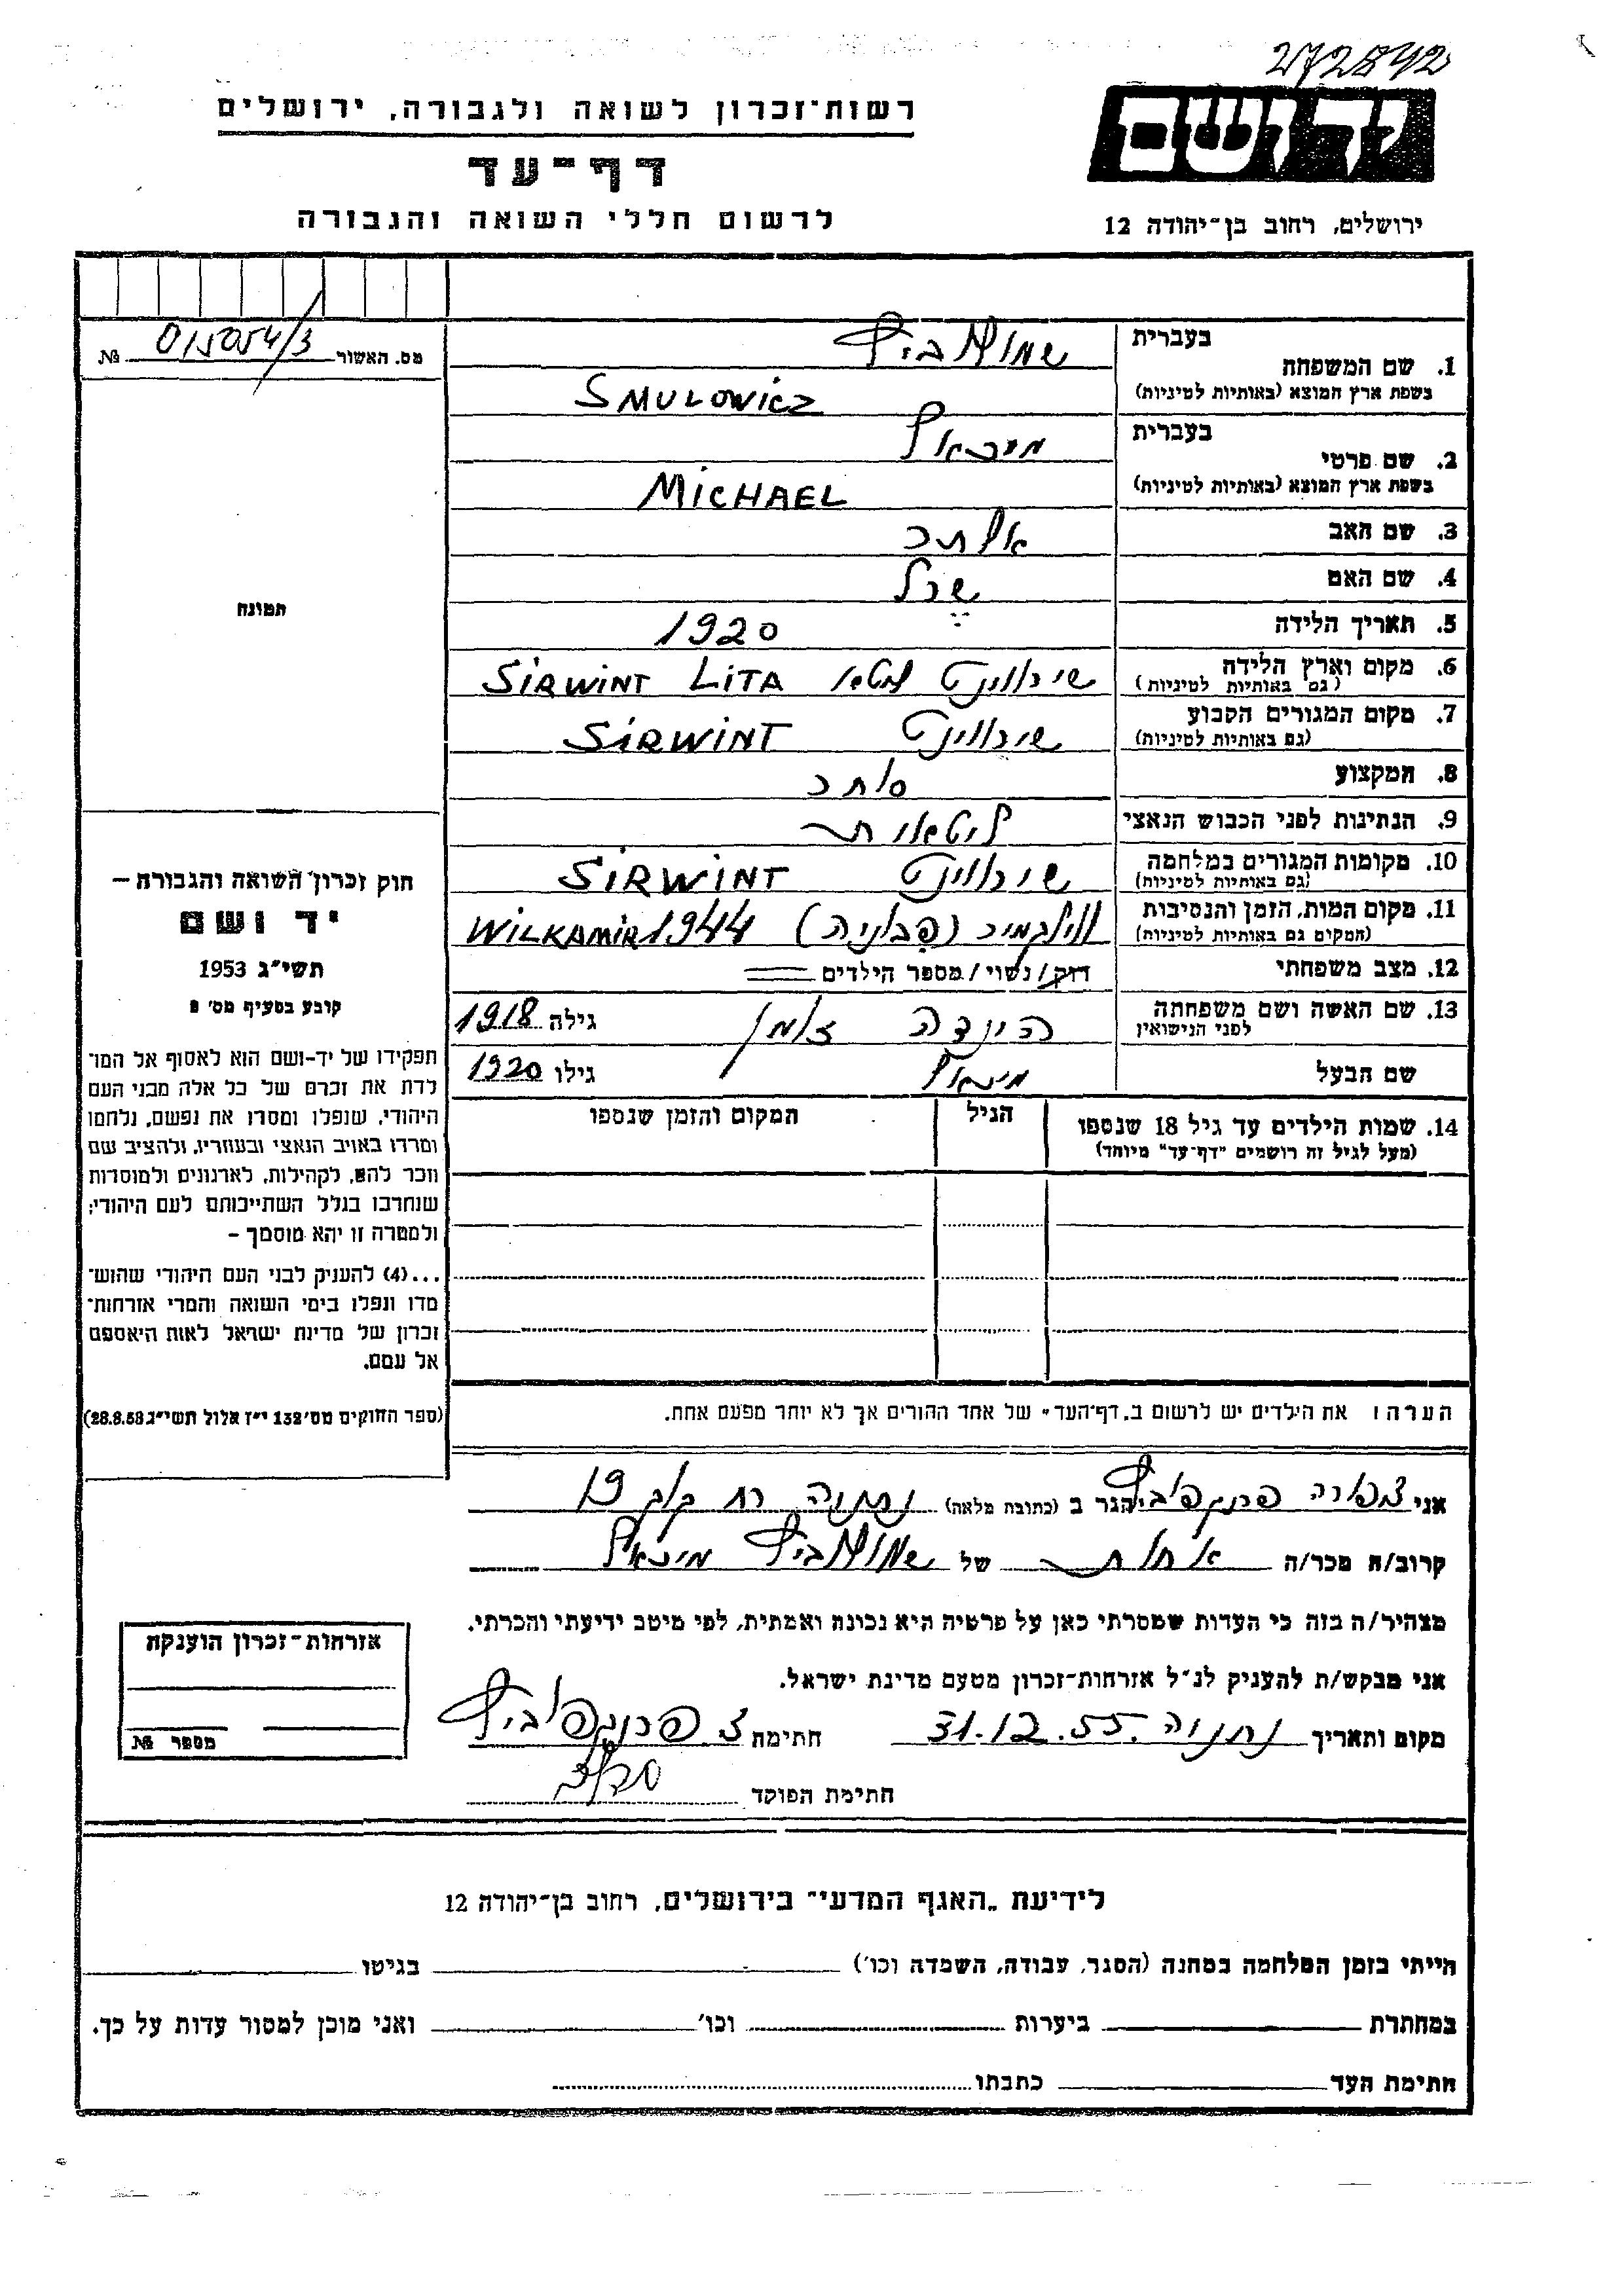 272842
יד ושם
רשות-זכרון לשואה ולגבורה, ירושלים
דף-עד
לרשום חללי השואה והגבורה
ירושלים, רחוב בן-יהודה 12
מס. האשור № 015054/3
בעברית שמולוביץ
1. שם המשפחה
(בשפת ארץ המוצא (באותיות לטיניות SMULOWICZ
בעברית מיכאל
2. שם פרטי
(בשפת ארץ המוצא (באותיות לטיניות MICHAEL
3. שם האב
4. שם האם
5. תאריך הלידה 1920
6. מקום וארץ הלידה שירווינט ליטא SIRWINT LITA
(גם באותיות לטיניות)
7. מקום המגורים הקבוע שירווינט SIRWINT
(גם באותיות לטיניות)
8. המקצוע סוחר
9. הנתינות לפני הכבוש הנאצי ליטאית
10. מקומות המגורים במלחמה שירווינט SIRWINT
(גם באותיות לטיניות)
11. מקום המות, הזמן והנסיבות WILKAMIR 1944
(המקום גם באותיות לטיניות)
12. מצב משפחתי רוק/נשוי/מספר הילדים
13. שם האשה ושם משפחתה גילה 1918
לפני הנישואין
שם הבעל מיכאל גילו 1920
14. שמות הילדים עד גיל 18 שנספו הגיל המקום והזמן שנספו
(מעל לגיל זה רושמים "דף-עד" מיוחד)
הערה: את הילדים יש לרשום ב"דף-העד" של אחד ההורים אך לא יותר מפעם אחת.
תמונה
חוק זכרון השואה והגבורה –
יד ושם
תשי"ג 1953
קובע בסעיף מס' 2
תפקידו של יד-ושם הוא לאסוף אל המו-
לדת את זכרם של כל אלה מבני העם
היהודי, שנפלו ומסרו את נפשם, נלחמו
ומרדו באויב הנאצי ובעוזריו, ולהציב שם
וזכר להם, לקהילות, לארגונים ולמוסדות
שנחרבו בגלל השתייכותם לעם היהודי;
ולמטרה זו יהא מוסמך –
...(4) להעניק לבני העם היהודי שהוש-
מדו ונפלו בימי השואה והמרי אזרחות-
זכרון של מדינת ישראל לאות היאספם
אל עמם.
(ספר החוקים מס' 132 י"ז אלול תשי"ג 28.8.53)
אני צפורה הגר ב (כתובת מלאה) נתניה רח 19
קרוב/ה מכר/ה אחות של שמולוביץ מיכאל
מצהיר/ה בזה כי העדות שמסרתי כאן על פרטיה היא נכונה ואמתית, לפי מיטב ידיעתי והכרתי.
אני מבקש/ת להעניק לנ"ל אזרחות-זכרון מטעם מדינת ישראל.
מקום ותאריך נתניה 31.12.55 חתימה
חתימת הפוקד
אזרחות-זכרון הוענקה
מספר №
לידיעת "האגף המדעי" בירושלים, רחוב בן-יהודה 12
הייתי בזמן המלחמה במחנה (הסגר, עבודה, השמדה וכו') בגיטו
במחתרת ביערות וכו' ואני מוכן למסור עדות על כך.
חתימת העד כתבתו